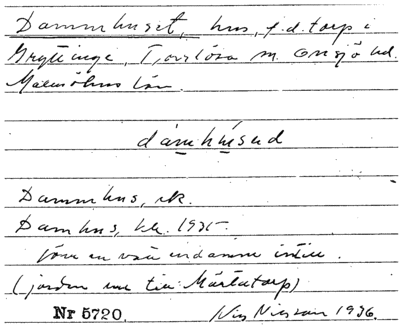 Dammhuset, hus, f.d. torp i
Gryttinge, Torrlösa sn. Onsjö hd.
Malmöhus län.
damhúsed
Dammhus, ek.
Damhus, kk. 1915
förr en vattendamm intill.
(jorden till Mårtatorp)
Nr 5720. Nils Nilsson 1936.